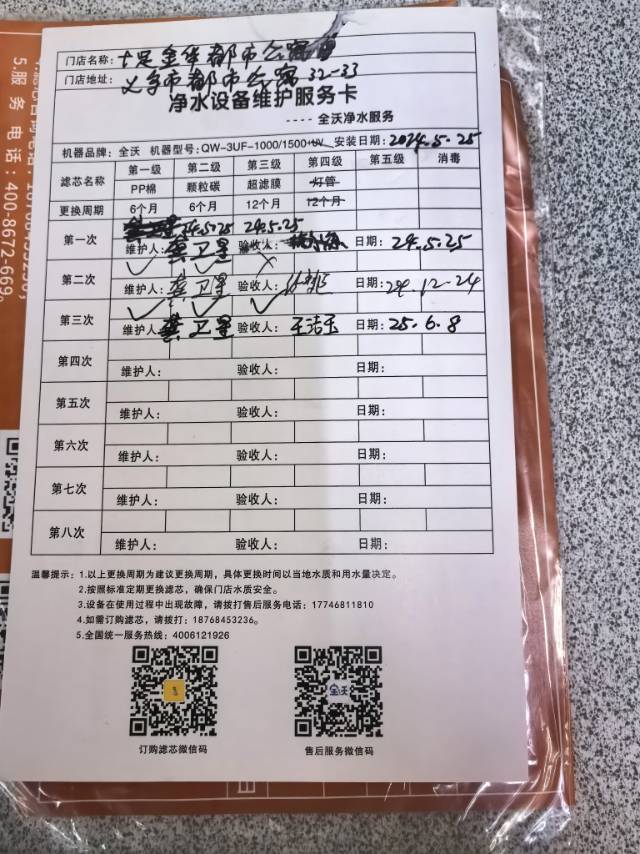 门店名称: 十足金华都市公寓店
门店地址: 义乌市都市公寓32-33
净水设备维护服务卡
---- 全沃净水服务
机器品牌: 全沃 机器型号: QW-3UF-1000/1500+UV 安装日期: 2024.5.25
滤芯名称 第一级 第二级 第三级 第四级 第五级 消毒
PP棉 颗粒碳 超滤膜 灯管
更换周期 6个月 6个月 12个月 12个月
24.5.25 24.5.25
第一次 维护人: 龚卫星 验收人: 日期: 24.5.25
第二次 维护人: 龚卫星 验收人: 日期: 24.12.24
第三次 维护人: 龚卫星 验收人: 王洁玉 日期: 25.6.8
第四次 维护人: 验收人: 日期:
第五次 维护人: 验收人: 日期:
第六次 维护人: 验收人: 日期:
第七次 维护人: 验收人: 日期:
第八次 维护人: 验收人: 日期:
温馨提示: 1.以上更换周期为建议更换周期，具体更换时间以当地水质和用水量决定。
2.按照标准定期更换滤芯，确保门店水质安全。
3.设备在使用过程中出现故障，请拨打售后服务电话: 17746811810
4.如需订购滤芯，请拨打: 18768453236。
5.全国统一服务热线: 4006121926
全沃
订购滤芯微信码 售后服务微信码
5.服务电话: 400-8672-669。